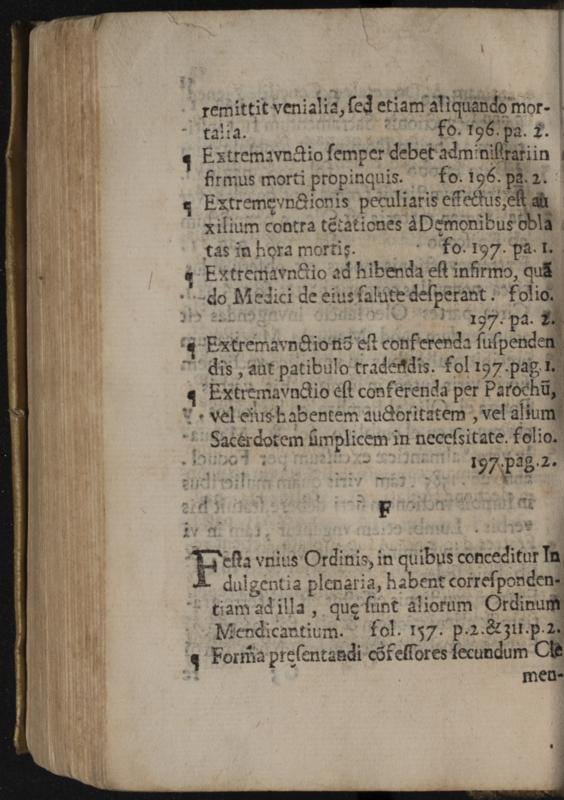 remittit venialia, ſed etiam aliquando mor-
talia. fo. 196. pa. 2.
¶ Extremavnctio ſemper debet adminiſtrari in
firmus morti propinquis. fo. 196. pa. 2.
¶ Extremęvnctionis peculiaris effectus, eſt au
xilium contra tẽtationes à Dęmonibus obla
tas in hora mortis. fo. 197. pa. 1.
¶ Extremavnctio ad hibenda eſt infirmo, quã
do Medici de eius ſalute deſperant. folio.
197. pa. 2.
¶ Extremavnctio nõ eſt conferenda ſuſpenden
dis, aut patibulo tradendis. fol 197. pag. 1.
¶ Extremavnctio eſt conferenda per Parochũ,
vel eius habentem auctoritatem, vel alium
Sacerdotem ſimplicem in neceſsitate. folio.
197. pag. 2.
F
Feſta vnius Ordinis, in quibus conceditur In
dulgentia plenaria, habent correſponden-
tiam ad illa, quę ſunt aliorum Ordinum
Mendicantium. fol. 157. p. 2. & 311. p. 2.
¶ Forma pręſentandi cõfeſſores ſecundum Cle
men-